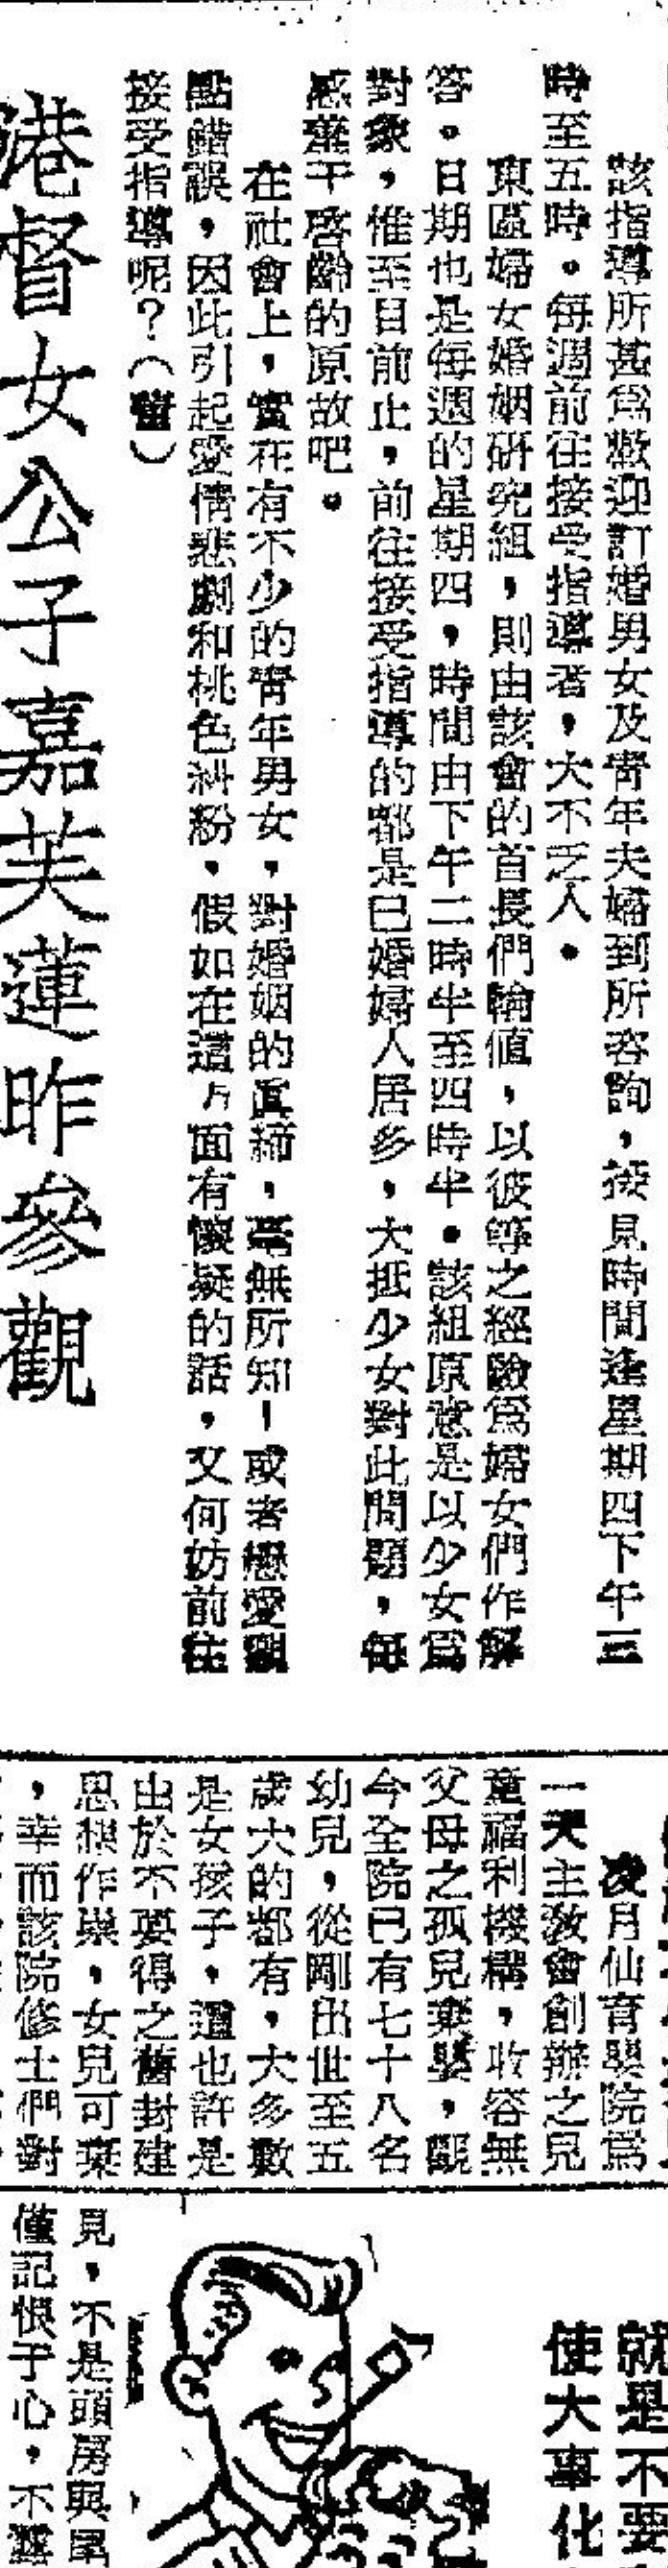 該指導所甚爲歡迎訂婚男女及青年夫婦到所咨詢，接見時間逢星期四下午三
時至五時。每週前往接受指導者，大不乏人。
東區婦女婚姻研究組，則由該會的首長們輪值，以彼等之經驗爲婦女們作解
答。日期也是每週的星期四，時間由下午二時半至四時半。該組原意是以少女爲
對象，惟至目前止，前往接受指導的都是已婚婦人居多，大抵少女對此問題，每
感羞于啓齒的原故吧。
在社會上，實在有不少的青年男女，對婚姻的眞締，毫無所知！或者戀愛觀
點錯誤，因此引起愛情悲劇和桃色糾紛，假如在這方面有懷疑的話，又何妨前往
接受指導呢？（
港督女公子嘉芙蓮昨參觀
凌月仙育嬰院爲
一天主教會創辦之兒
童福利機構，收容無
父母之孤兒棄嬰，
今全院已有七十八名
幼兒，從剛出世至五
歲大的都有，大多數
是女孩子，這也許是
出於不要得之舊封建
思想作祟，女兒可棄
，幸而該院修士們對
就是不要
使大事化
見，不是頭房與尾
僅記恨于心，不